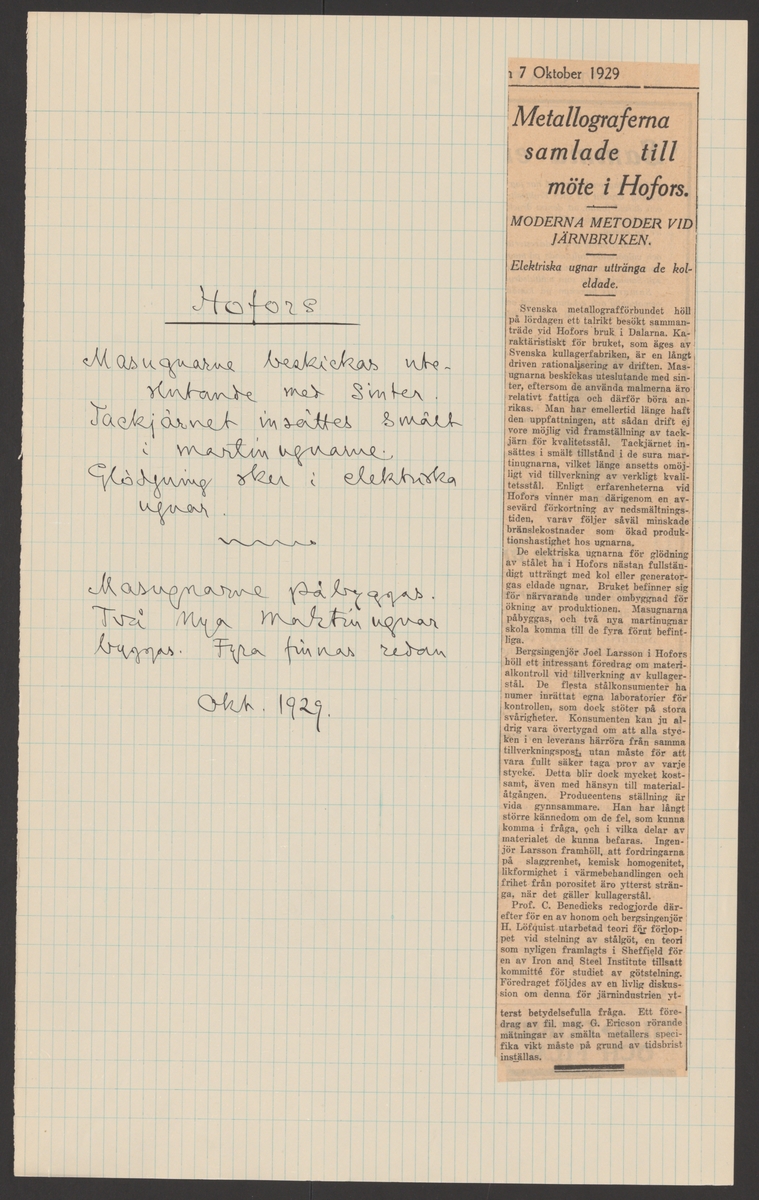 Hofors
Masugnarne beskickas ute-
slutande med Sinter.
Tackjärnet insättes smält
i martinugnarne.
Glödgning sker i elektriska
ugnar.
Masugnarne påbyggas.
Två nya martinugnar
byggas. Fyra finnas redan
Okt. 1929.
n 7 Oktober 1929
Metallograferna
samlade till
möte i Hofors.
MODERNA METODER VID
JÄRNBRUKEN.
Elektriska ugnar uttränga de kol-
eldade.
Svenska metallografförbundet höll
på lördagen ett talrikt besökt samman-
träde vid Hofors bruk i Dalarna. Ka-
raktäristiskt för bruket, som äges av
Svenska kullagerfabriken, är en långt
driven rationalisering av driften. Mas-
ugnarna beskickas uteslutande med sin-
ter, eftersom de använda malmerna äro
relativt fattiga och därför böra an-
rikas. Man har emellertid länge haft
den uppfattningen, att sådan drift ej
vore möjlig vid framställning av tack-
järn för kvalitetsstål. Tackjärnet in-
sättes i smält tillstånd i de sura mar-
tinugnarna, vilket länge ansetts omöj-
ligt vid tillverkning av verkligt kvali-
tetsstål. Enligt erfarenheterna vid
Hofors vinner man därigenom en av-
sevärd förkortning av nedsmältnings-
tiden, varav följer såväl minskade
bränslekostnader som ökad produk-
tionshastighet hos ugnarna.
De elektriska ugnarna för glödning
av stålet ha i Hofors nästan fullstän-
digt utträngt med kol eller generator-
gas eldade ugnar. Bruket befinner sig
för närvarande under ombyggnad för
ökning av produktionen. Masugnarna
påbyggas, och två nya martinugnar
skola komma till de fyra förut befint-
liga.
Bergsingenjör Joel Larsson i Hofors
höll ett intressant föredrag om materi-
alkontroll vid tillverkning av kullager-
stål. De flesta stålkonsumenter ha
numer inrättat egna laboratorier för
kontrollen, som dock stöter på stora
svårigheter. Konsumenten kan ju al-
drig vara övertygad om att alla styc-
ken i en leverans härröra från samma
tillverkningspost, utan måste för att
vara fullt säker taga prov av varje
stycke. Detta blir dock mycket kost-
samt, även med hänsyn till material-
åtgången. Producentens ställning är
vida gynnsammare. Han har långt
större kännedom om de fel, som kunna
komma i fråga, och i vilka delar av
materialet de kunna befaras. Ingen-
jör Larsson framhöll, att fordringarna
på slaggrenhet, kemisk homogenitet,
likformighet i värmebehandlingen och
frihet från porositet äro ytterst strän-
ga, när det gäller kullagerstål.
Prof. C. Benedicks redogjorde där-
efter för en av honom och bergsingenjör
H. Löfquist utarbetad teori för förlop-
pet vid stelning av stålgöt, en teori
som nyligen framlagts i Sheffield för
en av Iron and Steel Institute tillsatt
kommitté för studiet av götstelning.
Föredraget följdes av en livlig diskus-
sion om denna för järnindustrien yt-
terst betydelsefulla fråga. Ett före-
drag av fil. mag. G. Ericson rörande
mätningar av smälta metallers speci-
fika vikt måste på grund av tidsbrist
inställas.